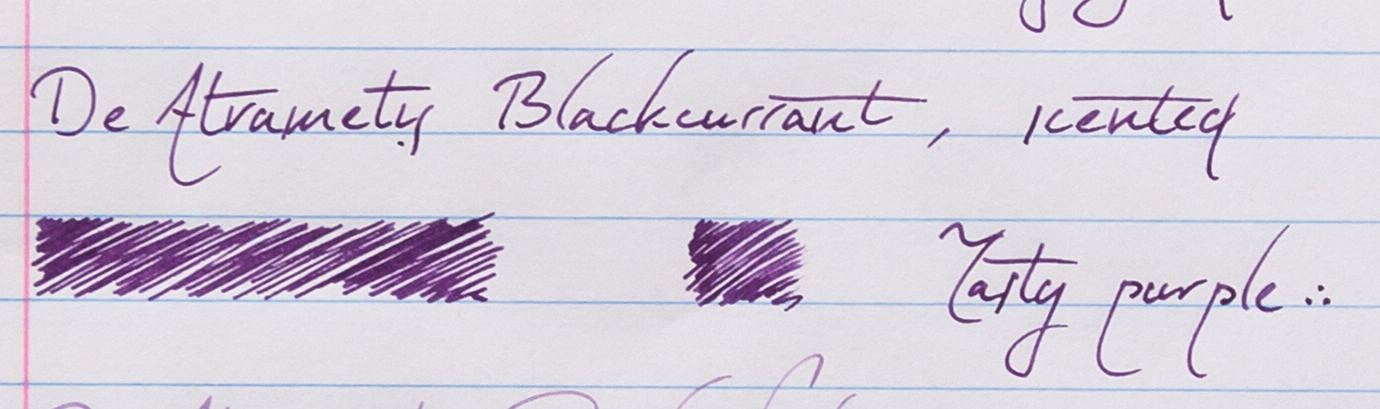 De Atramety Blackcurrant, scented
Tasty purple :.